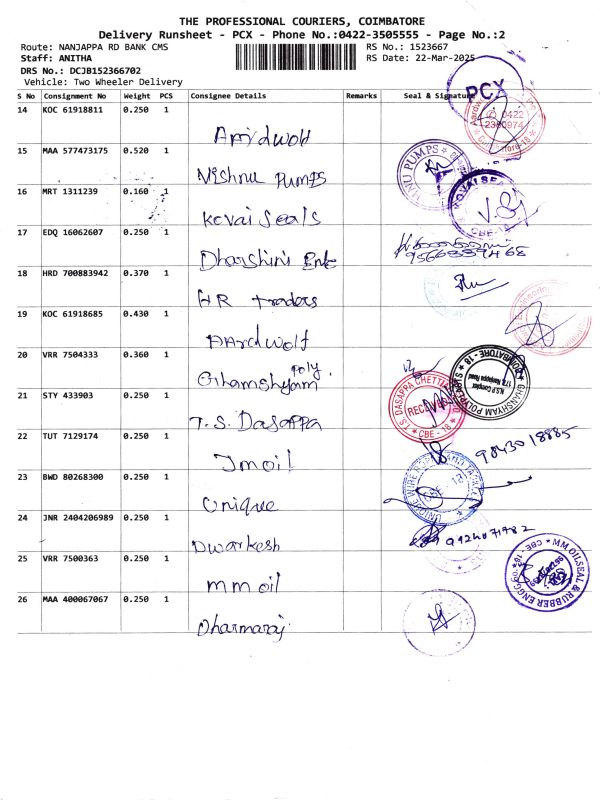 THE PROFESSIONAL COURIERS, COIMBATORE
Delivery Runsheet - PCX - Phone No.:0422-3505555 - Page No.:2
Route: NANJAPPA RD BANK CMS RS No.: 1523667
Staff: ANITHA RS Date: 22-Mar-2025
DRS No.: DCJB152366702
Vehicle: Two Wheeler Delivery
PCX
S No Consignment No Weight PCS Consignee Details Remarks Seal & Signature
14 KOC 61918811 0.250 1
0422
2380974
Coimbatore-18
Ardwolf
15 MAA 577473175 0.520 1
PUMPS
Vishnu Pumps
16 MRT 1311239 0.160 1
KOVAI SEALS
CBE-18
Kovai Seals
17 EDQ 16062607 0.250 1
Dharshini Ent
18 HRD 700883942 0.370 1
HR traders
19 KOC 61918685 0.430 1
AArdwolf
20 VRR 7504333 0.360 1
GHANSHYAM POLYMERS
COIMBATORE - 18
N.S.P. Complex
172, Nanjappa Road
Ghamshyam poly
21 STY 433903 0.250 1
T.S. DASAPPA CHETTIAR
RECEIVED
CBE - 18
T.S. Dasappa
22 TUT 7129174 0.250 1
9843018885
Jmoil
23 BWD 80268300 0.250 1
UNIQUE WIRE
CBE - 18
Unique
24 JNR 2404206989 0.250 1
Dwarkesh
25 VRR 7500363 0.250 1
MM OILSEAL & RUBBER ENGG.
CBE-18
mm oil
26 MAA 400067067 0.250 1
Dharmaraj